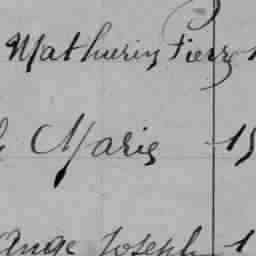 Mathurin Pierr
Marie 15
Ange Joseph 1